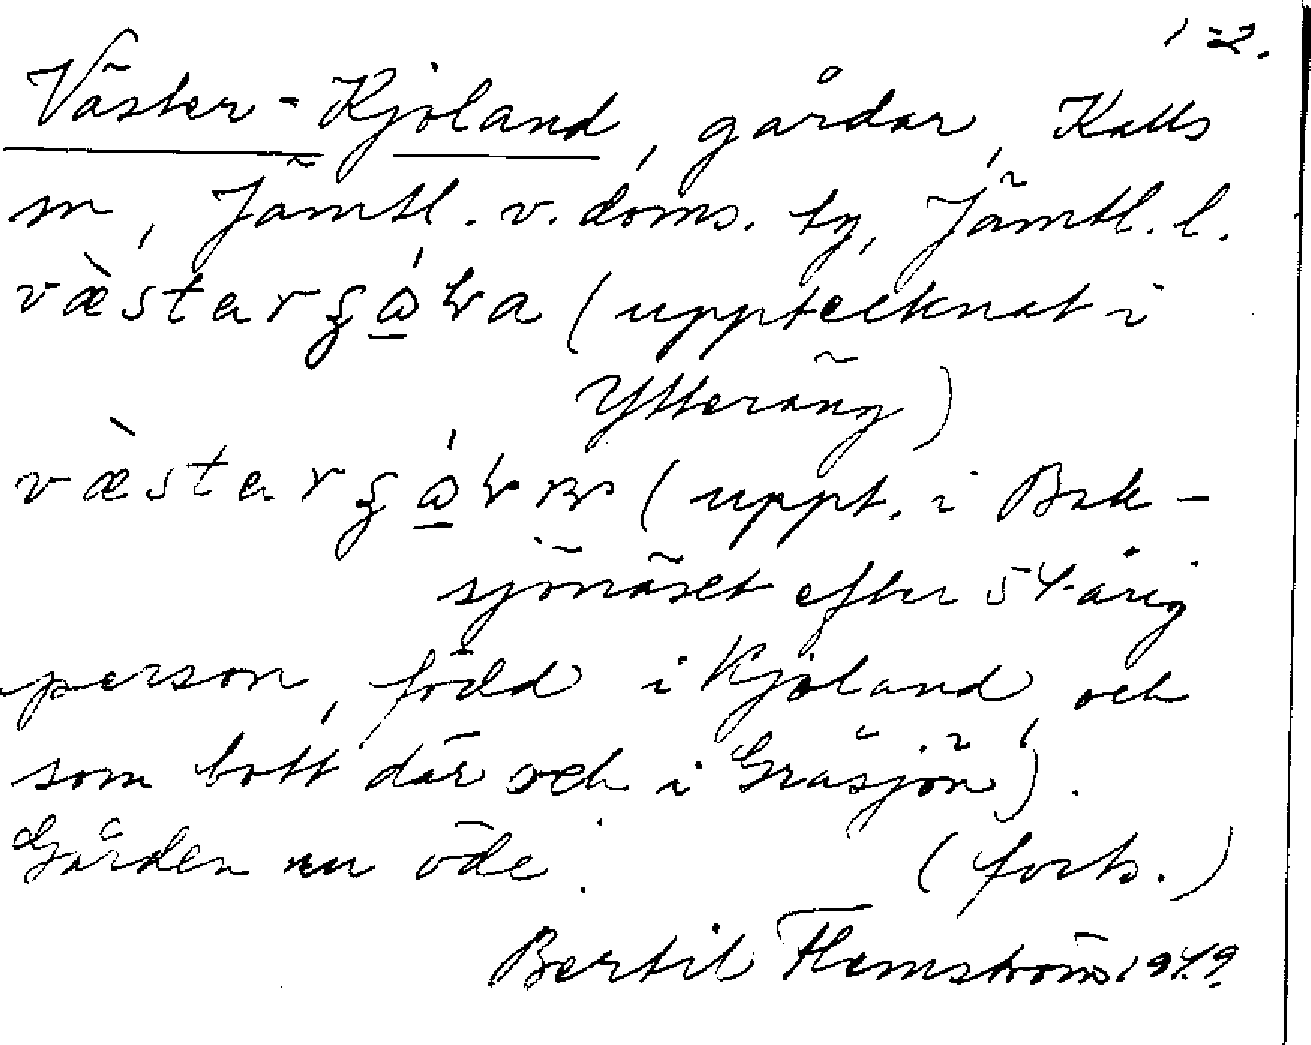 1-2.
Väster-Kjoland, gårdar, Kalls
sn, Jämtl. v. doms. tg, Jämtl. l.
(upptecknat i
Ytteräng)
(uppt. i Bak-
sjönäset efter 54-årig
person, född i Kjoland och
som bott där och i Gråsjön).
Gården nu öde. (forts.)
Bertil Flemström 1949.